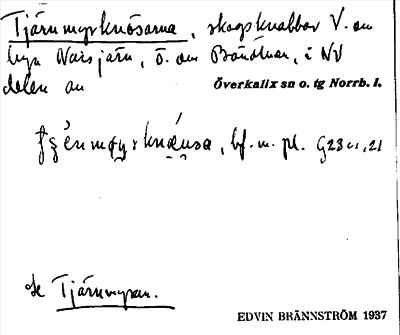 Tjärnmyrknösarna, skogsknabbar V. om
byn Narsjärv, ö. om Bändtner, i NV
delen av Överkalix sn o. tg Norrb. l.
bf. m. pl.
se Tjärnmyran.
EDVIN BRÄNNSTRÖM 1937